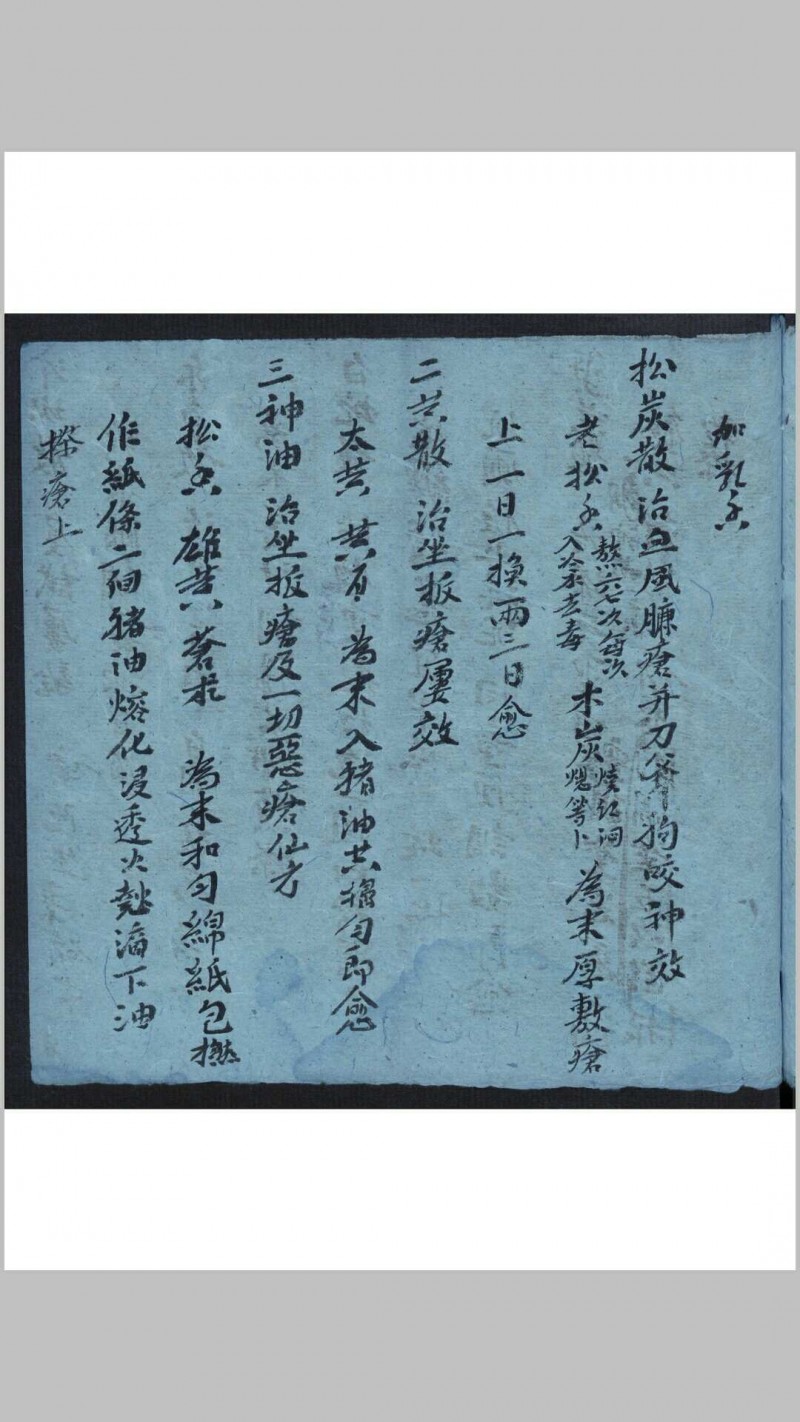 加乳香
松炭散 治血風臁瘡并刀斧狗咬神效
老松香 熬六七次每次入冷水去毒 木炭 燒紅洞熄等卜 為末厚敷瘡
上一日一換兩三日愈
二黄散 治坐板瘡屢效
太黄 黄百 為末入豬油共搗勻即愈
三神油 治坐板瘡及一切惡瘡仙方
松香 雄黄 蒼朮 為末和勻綿紙包撚
作紙條二個豬油熔化浸透火點滴下油
搽瘡上